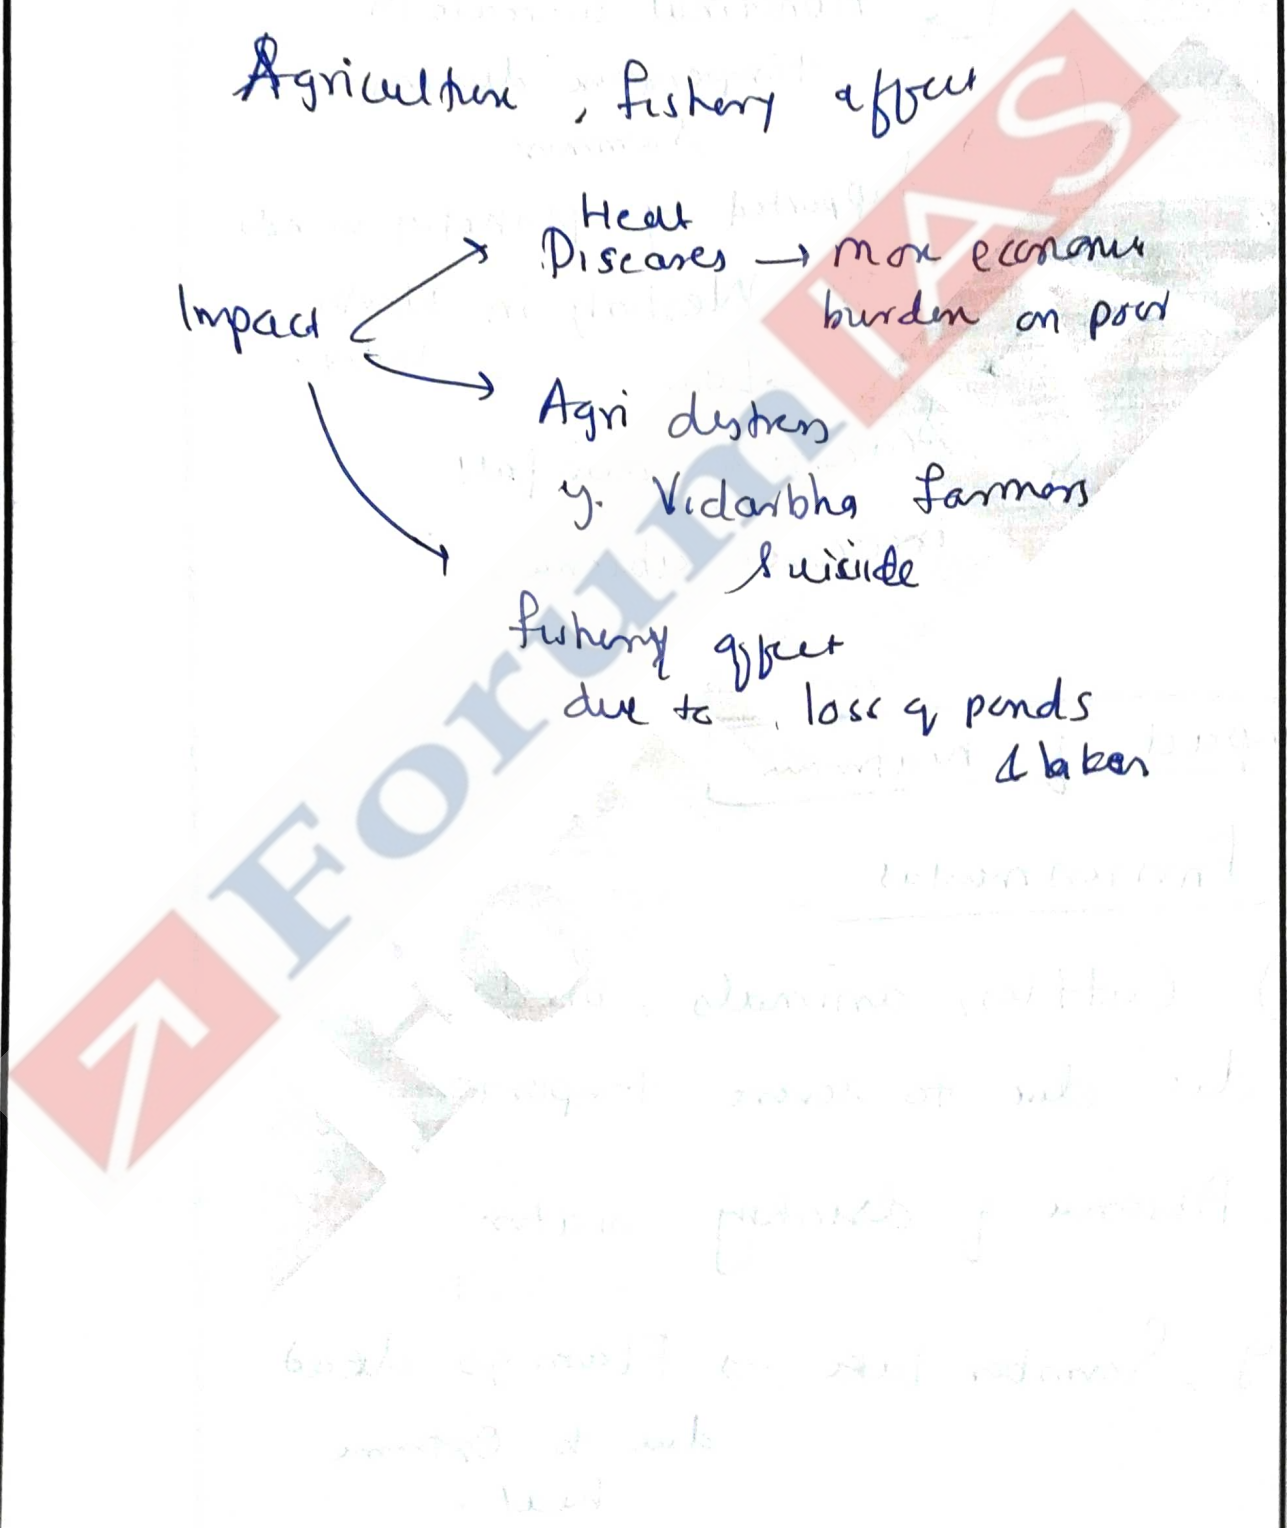 Agriculture, fishery affect
Heat
Diseases → more economic
burden on poor
Impact
Agri distress
eg. Vidarbha farmers
suicide
fishery affect
due to loss of ponds
& lakes
Forum IAS